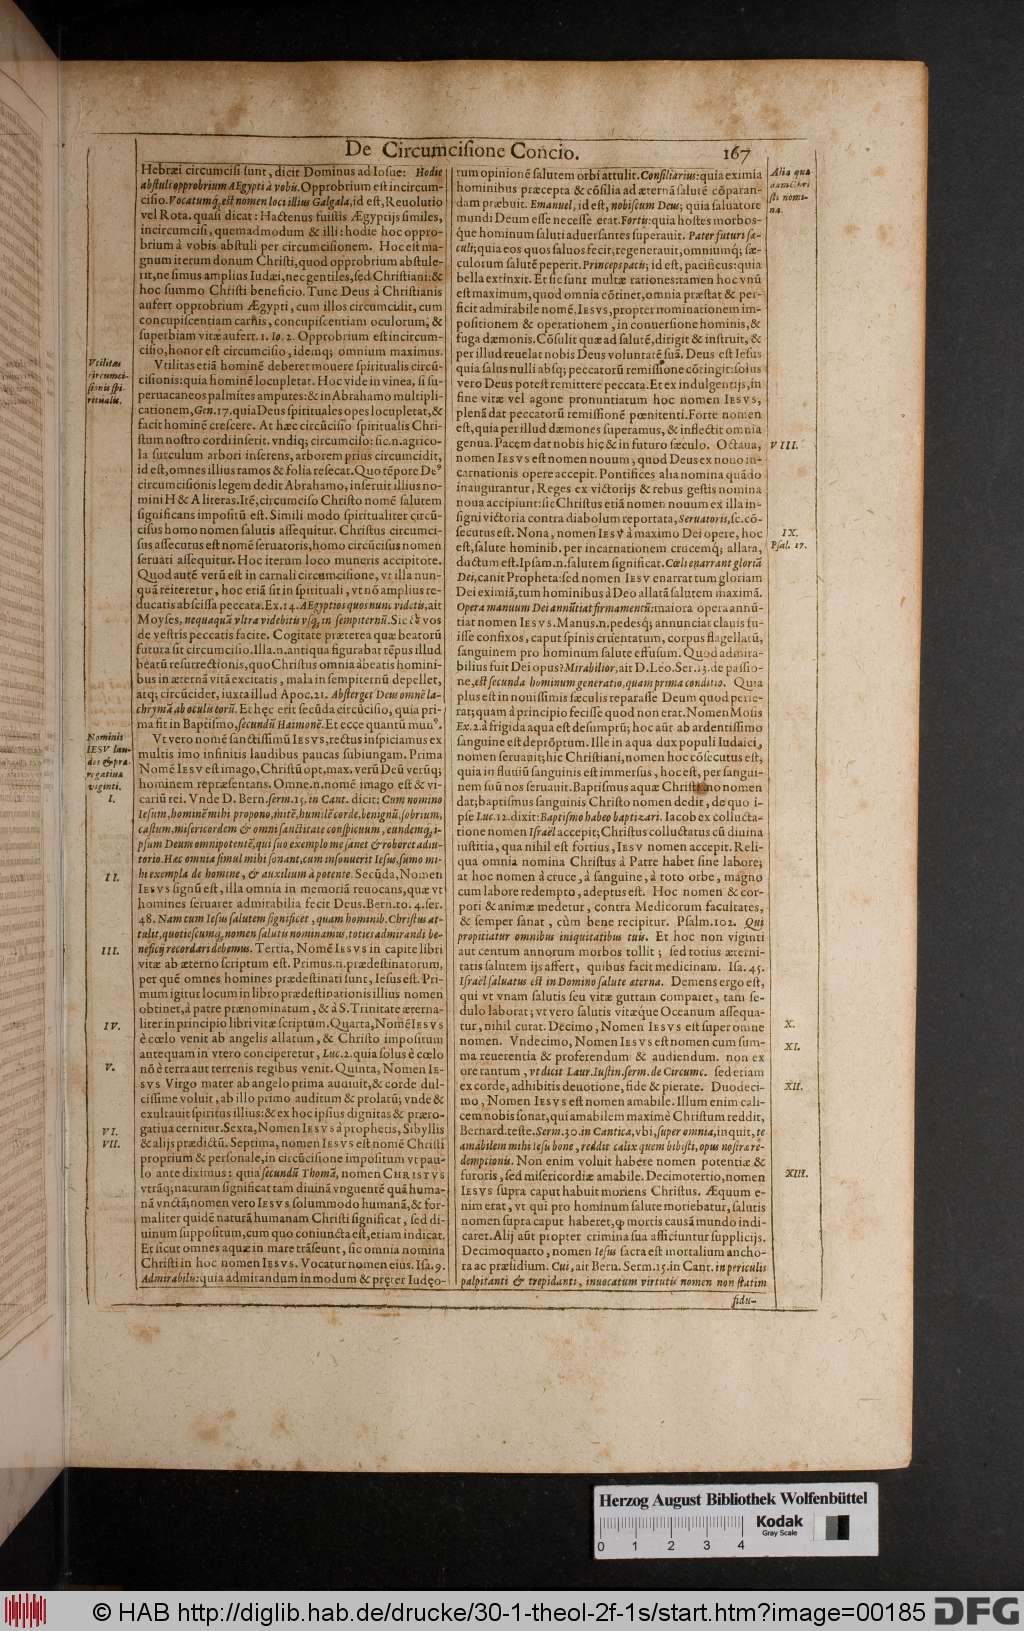 De Circumcisione Concio. 167
Hebræi circumcisi sunt, dicit Dominus ad Iosue: Hodie
abstuli opprobrium AEgypti à vobis. Opprobrium est incircum-
cisio. Vocatumq́, est nomen loci illius Galgala, id est, Reuolutio
vel Rota. quasi dicat: Hactenus fuistis Ægyptijs similes,
incircumcisi, quemadmodum & illi: hodie hoc oppro-
brium à vobis abstuli per circumcisionem. Hoc est ma-
gnum iterum donum Christi, quod opprobrium abstule-
rit, ne simus amplius Iudæi, nec gentiles, sed Christiani: &
hoc summo Christi beneficio. Tunc Deus à Christianis
aufert opprobrium Ægypti, cum illos circumcidit, cum
concupiscentiam carnis, concupiscentiam oculorum, &
superbiam vitæ aufert. 1. Io. 2. Opprobrium est incircum-
cisio, honor est circumcisio, idemq; omnium maximus.
Vtilitas
circumci-
sionis spi-
ritualis.
Vtilitas etiā hominē deberet mouere spiritualis circū-
cisionis: quia hominē locupletat. Hoc vide in vinea, si su-
peruacaneos palmites amputes: & in Abrahamo multipli-
cationem, Gen. 17. quia Deus spirituales opes locupletat, &
facit hominē crescere. At hæc circūcisio spiritualis Chri-
stum nostro cordi inserit. vndiq; circumciso: sic. n. agrico-
la surculum arbori inserens, arborem prius circumcidit,
id est, omnes illius ramos & folia resecat. Quo tēpore De⁹
circumcisionis legem dedit Abrahamo, inseruit illius no-
mini H & A literas. Itē, circumciso Christo nomē salutem
significans impositū est. Simili modo spiritualiter circū-
cisus homo nomen salutis assequitur. Christus circumci-
sus assecutus est nomē seruatoris, homo circūcisus nomen
seruati assequitur. Hoc iterum loco muneris accipitote.
Quod autē verū est in carnali circumcisione, vt illa nun-
quā reiteretur, hoc etiā sit in spirituali, vt nō amplius re-
ducatis abscissa peccata. Ex. 14. AEgyptios quos nunc videtis, ait
Moyses, nequaquā vltra videbitis vsq́, in sempiternū. Sic & vos
de vestris peccatis facite. Cogitate præterea quæ beatorū
futura sit circumcisio. Illa. n. antiqua figurabat tēpus illud
beatū resurrectionis, quo Christus omnia à beatis homini-
bus in æternā vitā excitatis, mala in sempiternū depellet,
atq; circūcidet, iuxta illud Apoc. 21. Absterget Deus omnē la-
chrymā, ab oculis eorū. Et hęc erit secūda circūcisio, quia pri-
ma fit in Baptismo, secundū Haimonē. Et ecce quantū mun⁹.
Nominis
IESV lau-
des & præ-
rogatiua
viginti.
I.
Vt vero nomē sanctissimū IESVS, rectus inspiciamus ex
multis imo infinitis laudibus paucas subiungam. Prima
Nomē IESV est imago, Christū opt. max. verū Deū verūq;
hominem repræsentans. Omne. n. nomē imago est & vi-
cariū rei. Vnde D. Bern. serm. 15. in Cant. dicit: Cum nomino
Iesum, hominē mihi propono, mitē, humilē corde, benignū, sobrium,
castum, misericordem & omni sanctitate conspicuum, eundemq́, i-
psum Deum omnipotentē, qui suo exemplo me sanet & roboret adiu-
torio. Hæc omnia simul mihi sonant, cum insonuerit Iesus, sumo mi-
II.
hi exempla de homine, & auxilium à potente. Secūda, Nomen
IESVS signū est, illa omnia in memoriā reuocans, quæ vt
homines seruaret admirabilia fecit Deus. Bern. to. 4. ser.
48. Nam cum Iesus salutem significet, quam hominib. Christus at-
tulit, quotiescumq́, nomen salutis nominamus, toties admirandi be-
III.
neficij recordari debemus. Tertia, Nomē IESVS in capite libri
vitæ ab æterno scriptum est. Primus. n. prædestinatorum,
per quē omnes homines prædestinati sunt, Iesus est. Pri-
mum igitur locum in libro prædestinationis illius nomen
obtinet, à patre prænominatum, & à S. Trinitate æterna-
IV.
liter in principio libri vitæ scriptum. Quarta, Nomē IESVS
è cœlo venit ab angelis allatum, & Christo impositum
antequam in vtero conciperetur, Luc. 2. quia solus è cœlo
V.
nō è terra aut terrenis regibus venit. Quinta, Nomen IE-
SVS Virgo mater ab angelo prima audiuit, & corde dul-
cissime voluit, ab illo primo auditum & prolatū; vnde &
exultauit spiritus illius: & ex hoc ipsius dignitas & præro-
VI.
gatiua cernitur. Sexta, Nomen IESVS à prophetis, Sibyllis
VII.
& alijs prædictū. Septima, nomen IESVS est nomē Christi
proprium & personale, in circūcisione impositum vt pau-
lo ante diximus: quia secundū Thomā, nomen CHRISTVS
vtrāq; naturam significat tam diuinā vnguentē quā huma-
nā vnctā; nomen vero IESVS solummodo humanā, & for-
maliter quidē naturā humanam Christi significat, sed di-
uinum suppositum, cum quo coniuncta est, etiam indicat.
Et sicut omnes aquæ in mare trāseunt, sic omnia nomina
Christi in hoc nomen IESVS. Vocatur nomen eius. Isa. 9.
Admirabilis: quia admirandum in modum & pręter Iudęo-
rum opinionē salutem orbi attulit. Consiliarius: quia eximia
hominibus præcepta & cōsilia ad æternā salutē cōparan-
dam præbuit. Emanuel, id est, nobiscum Deus; quia saluatorē
mundi Deum esse necesse erat. Fortis: quia hostes morbos-
q́ue hominum saluti aduersantes superauit. Pater futuri sæ-
culi; quia eos quos saluos fecit, regenerauit, omniumq́; sæ-
culorum salutē peperit. Princeps pacis; id est, pacificus: quia
bella extinxit. Et sic sunt multæ rationes: tamen hoc vnū
est maximum, quod omnia cōtinet, omnia præstat & per-
ficit admirabile nomē, IESVS, propter nominationem im-
positionem & operationem, in conuersione hominis, &
fuga dæmonis. Cōsulit quæ ad salutē, dirigit & instruit, &
per illud reuelat nobis Deus voluntatē suā. Deus est Iesus
quia salus nulli absq; peccatorū remissione cōtingit: solus
vero Deus potest remittere peccata. Et ex indulgentijs, in
fine vitæ vel agone pronuntiatum hoc nomen IESVS,
plenā dat peccatorū remissionē pœnitenti. Forte nomen
est, quia per illud dæmones superamus, & inflectit omnia
genua. Pacem dat nobis hic & in futuro sæculo. Octaua,
nomen IESVS est nomen nouum, quod Deus ex nouo in-
carnationis opere accepit. Pontifices alia nomina quādo
inaugurantur, Reges ex victorijs & rebus gestis nomina
noua accipiunt: sic Christus etiā nomen nouum ex illa in-
signi victoria contra diabolum reportata, Seruatoris, sc. cō-
secutus est. Nona, nomen IESV à maximo Dei opere, hoc
est, salute hominib. per incarnationem crucemq; allata,
ductum est. Ipsam. n. salutem significat. Cœli enarrant gloriā
Dei, canit Propheta: sed nomen IESV enarrat tum gloriam
Dei eximiā, tum hominibus à Deo allatā salutem maximā.
Opera manuum Dei annūtiat firmamentū: maiora opera annū-
tiat nomen IESVS. Manus. n. pedesq́; annunciat clauis fu-
isse confixos, caput spinis cruentatum, corpus flagellatū,
sanguinem pro hominum salute effusum. Quod admira-
bilius fuit Dei opus? Mirabilior, ait D. Leo. Ser. 13. de passio-
ne, est secunda hominum generatio, quam prima conditio. Quia
plus est in nouissimis sæculis reparasse Deum quod perie-
rat; quam à principio fecisse quod non erat. Nomen Mosis
Ex. 2. à frigida aqua est desumptū; hoc aūt ab ardentissimo
sanguine est deprōptum. Ille in aqua dux populi Iudaici,
nomen seruauit; hic Christiani, nomen hoc cōsecutus est,
quia in fluuiū sanguinis est immersus, hoc est, per sangui-
nem suū nos seruauit. Baptismus aquæ Christiano nomen
dat; baptismus sanguinis Christo nomen dedit, de quo i-
pse Luc. 12. dixit: Baptismo habeo baptizari. Iacob ex collucta-
tione nomen Israël accepit; Christus colluctatus cū diuina
iustitia, qua nihil est fortius, IESV nomen accepit. Reli-
qua omnia nomina Christus à Patre habet sine labore;
at hoc nomen à cruce, à sanguine, à toto orbe, magno
cum labore redempto, adeptus est. Hoc nomen & cor-
pori & animæ medetur, contra Medicorum facultates,
& semper sanat, cùm bene recipitur. Psalm. 102. Qui
propitiatur omnibus iniquitatibus tuis. Et hoc non viginti
aut centum annorum morbos tollit; sed totius æterni-
tatis salutem ijs affert, quibus facit medicinam. Isa. 45.
Israël saluatus est in Domino salute æterna. Demens ergo est,
qui vt vnam salutis seu vitæ guttam comparet, tam se-
dulo laborat; vt vero salutis vitæque Oceanum assequa-
tur, nihil curat. Decimo, Nomen IESVS est super omne
nomen. Vndecimo, Nomen IESVS est nomen cum sum-
ma reuerentia & proferendum & audiendum. non ex
ore tantum, vt dicit Laur. Iustin. serm. de Circumc. sed etiam
ex corde, adhibitis deuotione, fide & pietate. Duodeci-
mo, Nomen IESVS est nomen amabile. Illum enim cali-
cem nobis sonat, qui amabilem maximè Christum reddit,
Bernard. teste. Serm. 30. in Cantica, vbi, super omnia, inquit, te
amabilem mihi Iesu bone, reddit calix quem bibisti, opus nostræ re-
demptionis. Non enim voluit habere nomen potentiæ &
furoris, sed misericordiæ amabile. Decimotertio, nomen
IESVS supra caput habuit moriens Christus. Æquum e-
nim erat, vt qui pro hominum salute moriebatur, salutis
nomen supra caput haberet, ꝙ mortis causā mundo indi-
caret. Alij aūt propter crimina sua afficiuntur supplicijs.
Decimoquarto, nomen Iesus sacra est mortalium ancho-
ra ac præsidium. Cui, ait Bern. Serm. 15. in Cant. in periculis
palpitanti & trepidanti, inuocatum virtutis nomen non statim
fidu-
Alia quæ
dam Chri
sti nomi-
na.
VIII.
IX.
Psal. 17.
X.
XI.
XII.
XIII.
Herzog August Bibliothek Wolfenbüttel
Kodak
Gray Scale
0 1 2 3 4
© HAB http://diglib.hab.de/drucke/30-1-theol-2f-1s/start.htm?image=00185 DFG